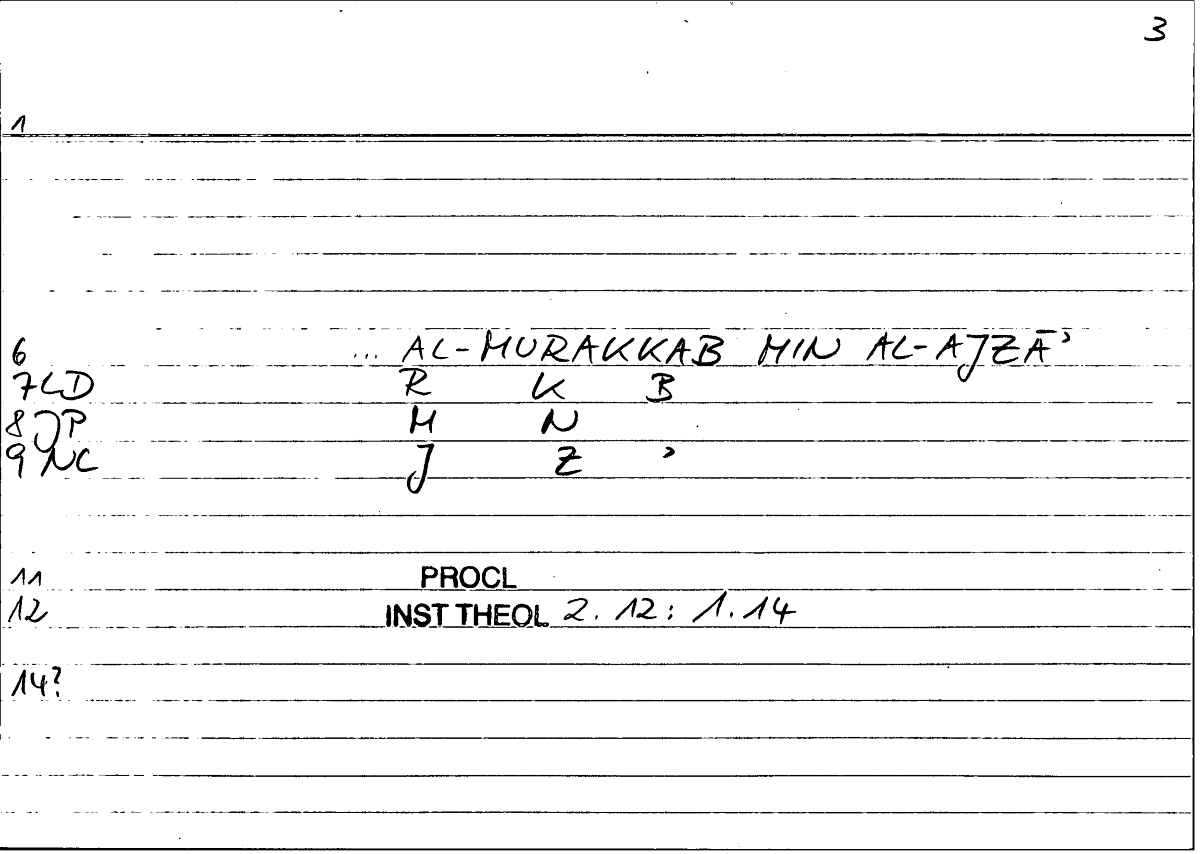 3
1
6 ... AL-MURAKKAB MIN AL-AJZĀʾ
7 LD R K B
8 JP M N
9 NC J Z ʾ
11 PROCL
12 INST THEOL 2. 12: 1. 14
14?